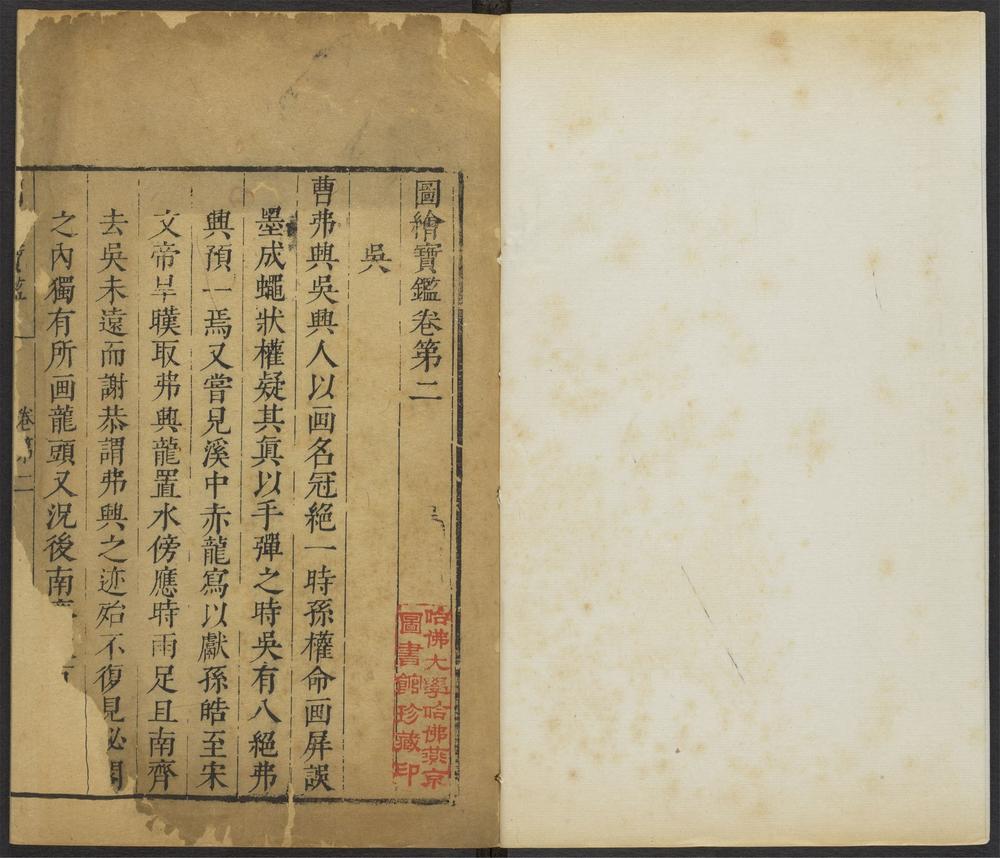 圖繪寶鑑卷第二
吳
曹弗興吳興人以画名冠絕一時孫權命画屏誤
墨成蠅狀權疑其真以手彈之時吳有八絕弗
興預一焉又嘗見溪中赤龍寫以獻孫皓至宋
文帝旱暵取弗興龍置水傍應時雨足且南齊
去吳未遠而謝恭謂弗興之迹殆不復見必閣
之內獨有所画龍頭又況後南
卷第二
哈佛大學哈佛燕京
圖書館珍藏印